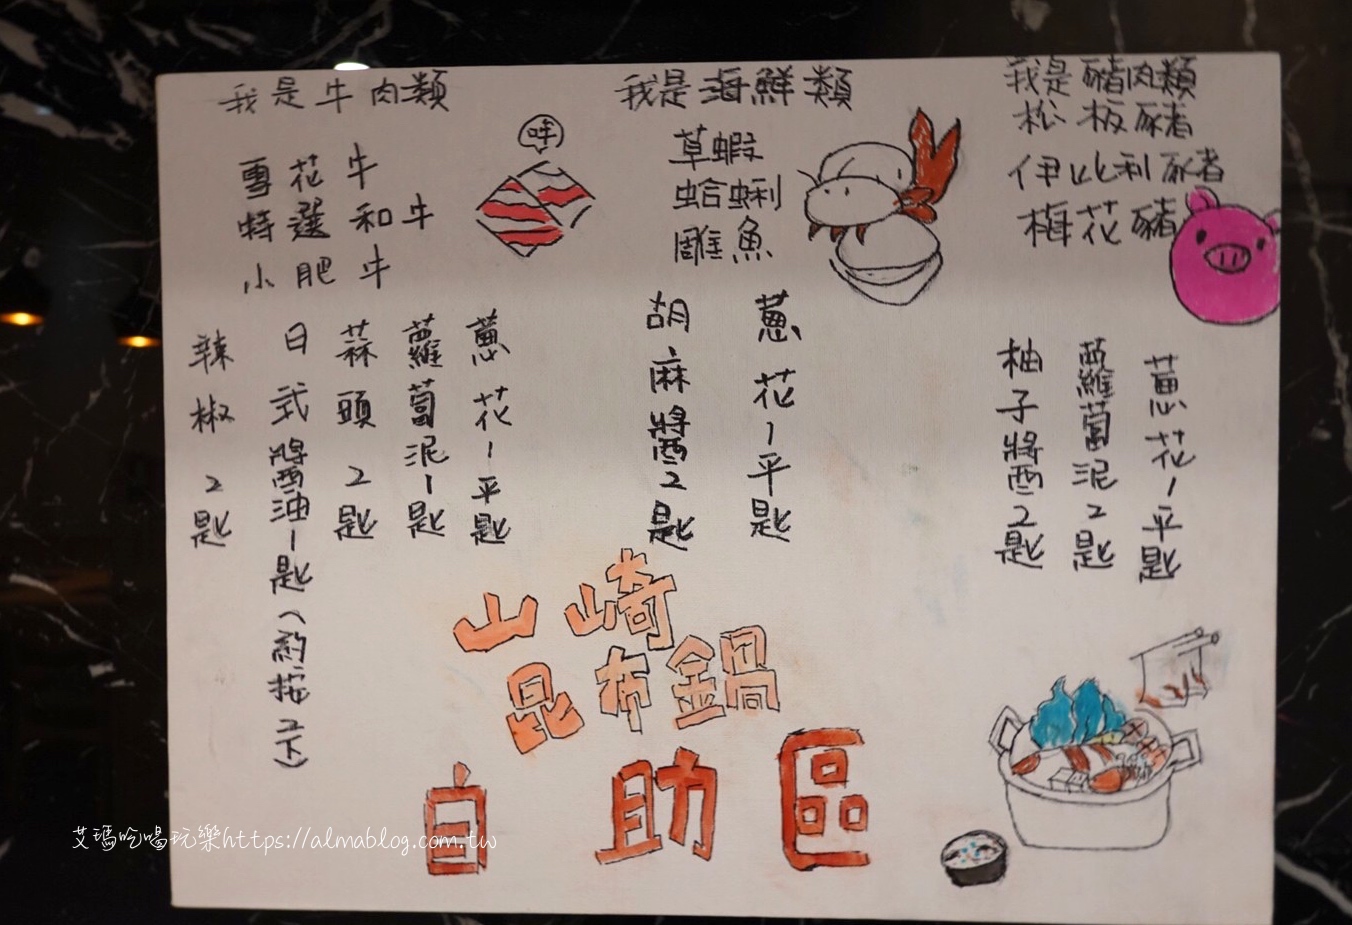 我是牛肉類
哞
雪花牛
特選和牛
小肥牛
蔥花1平匙
蘿蔔泥1匙
蒜頭2匙
日式醬油1匙(約按2下)
辣椒2匙
我是海鮮類
草蝦
蛤蜊
雕魚
蔥花1平匙
胡麻醬2匙
我是豬肉類
松板豬
伊比利豬
梅花豬
蔥花1平匙
蘿蔔泥2匙
柚子醬2匙
山崎
昆布鍋
自助區
艾瑪吃喝玩樂https://almablog.com.tw